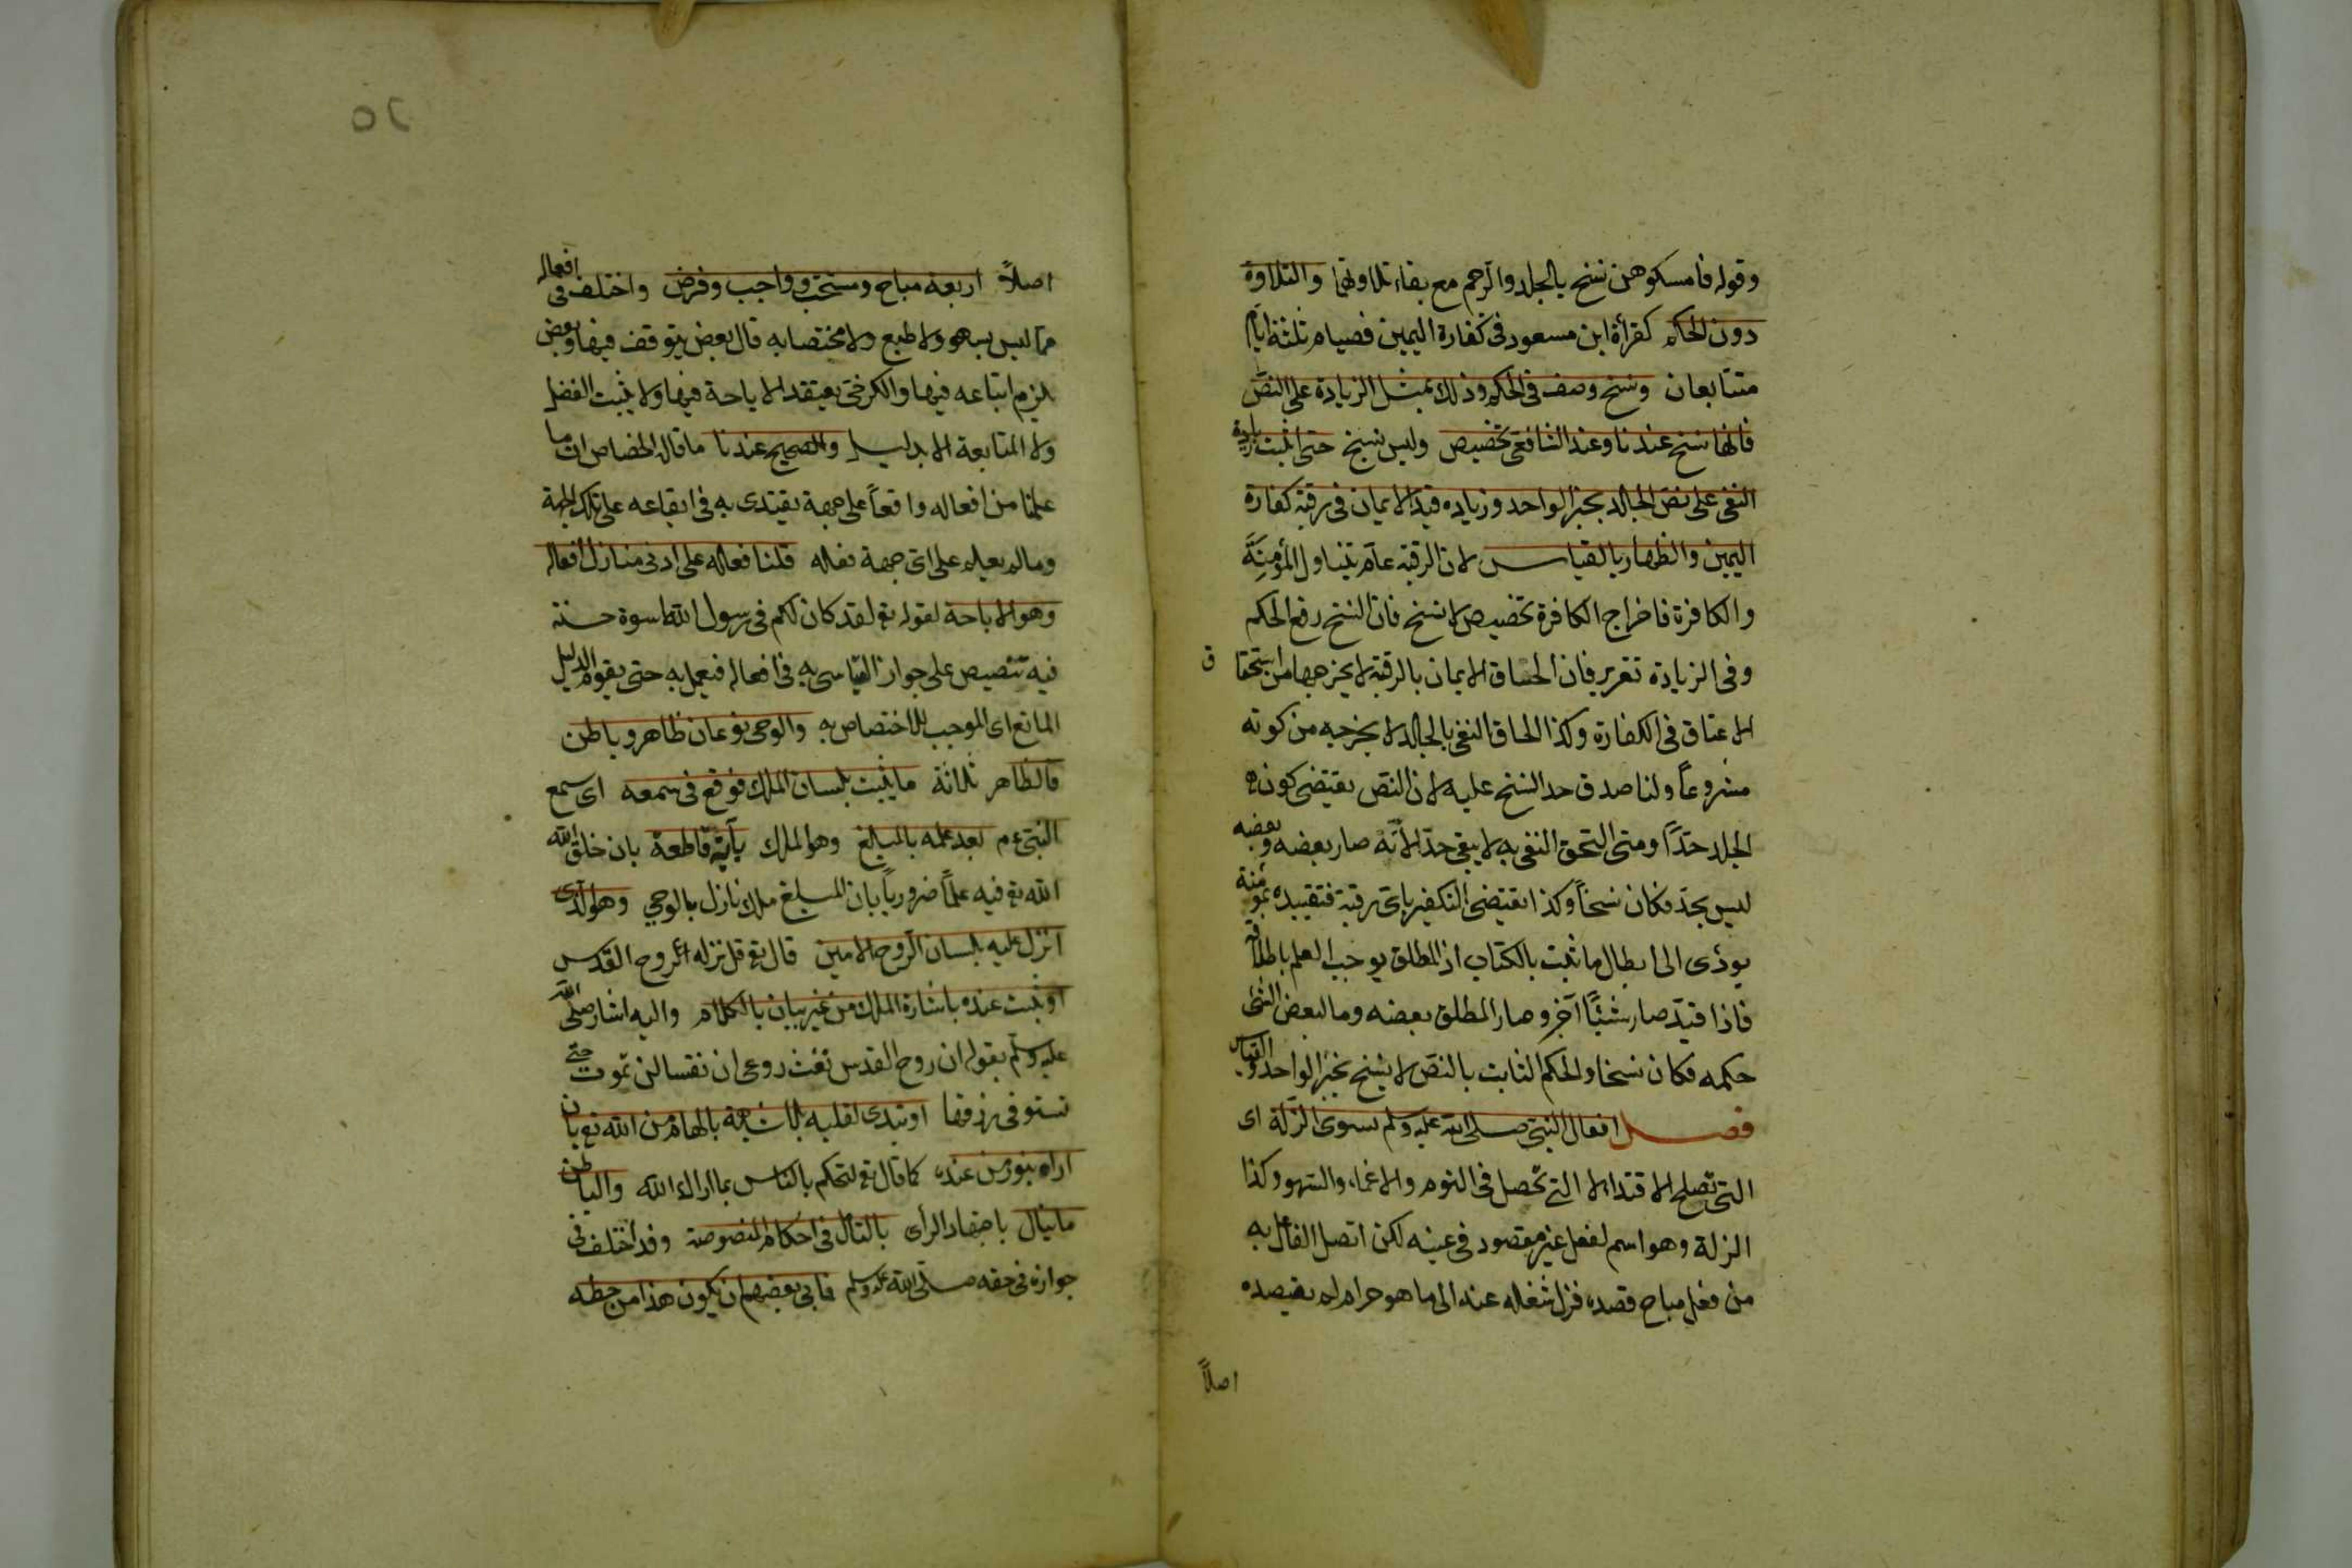 وقوله فامسكوهن نسخ بالجلد والرجم مع بقاء تلاوتها والتلاوة
دون الحكم كقرأة ابن مسعود فى كفارة اليمين فصيام ثلثة ايام
متتابعان ونسخ وصف فى الحكم وذلك بمثل الزيادة على النص
فانها نسخ عندنا وعند الشافعى تخصيص وليس نسخ حتى اثبت زيادة
النفى على نص الجلد بخبر الواحد وزياده قيد الايمان فى رقبة كفارة
اليمين والظهار بالقياس لان الرقبة عام يتناول المؤمِنَة
والكافرة فاخراج الكافرة تخصيص لا نسخ فان النسخ رفع الحكم
وفى الزيادة تقرير فان الحاق الايمان بالرقبة لا يخرجها من استحقا ق
الاعتاق فى الكفارة وكذا الحاق النفى بالجلد لا يخرجه من كونه
مشروعاً ولنا صدق حد النسخ عليه لان النص يقتضى كون
الجلد حدّاً ومتى التحق النفى به لا يبقى حدّا لانّه صار بعضه وبعضه
ليس بحدّ فكان نسخاً وكذا يقتضى التكفير باىّ رقبة فتقييده بمؤمنة
يودّى الى ابطال ما ثبت بالكتاب اذ المطلق يوجب العلم باطلاقه
فاذا قيّد صار شيئًا آخر وصار المطلق بعضه وما لبعض الشئ
حكمه فكان نسخا والحكم الثابت بالنص لا ينسخ بخبر الواحد والقياس
فصل افعال النبى صلى الله عليه وسلم سوى الزلّة اى
التى تصلح الاقتدا لا التى تحصل فى النوم والاغماء والسهو وكذا
الزلة وهو اسم لفعل غير مقصود فى عينه لكن اتصل الفاعل به
من فعل مباح قصده فزل شغله عنه الى ما هو حرام لم يقصده
اصلاً
٥٢
اصلاً اربعة مباح ومستحب وواجب وفرض واختلف فى افعاله
مما ليس بسهو ولا طبع ولا مختصا به قال بعض يتوقف فيها وبعض
يلزم اتباعه فيها والكرخى يعتقد الاباحة فيها ولا يثبت الفضل
ولا المتابعة الا بدليل والصحيح عندنا ما قاله الجصاص ان ما
علمنا من افعاله واقعاً على جهة يقتدى به فى ايقاعه على تلك الجهة
وما لم يعلم على اىّ جهة فعله قلنا فعله على ادنى منازل افعاله
وهو الاباحة لقوله تع لقد كان لكم فى رسول الله اسوة حسنة
فيه تنصيص على جواز التاسى به فى افعاله فيعمل به حتى يقوم الدليل
المانع اى الموجب للاختصاص به والوحى نوعان ظاهر وباطن
فالظاهر ثلاثة ما يثبت بلسان الملك فوقع فى سمعه اى سمع
النبى عم بعد علمه بالمبلغ وهو الملك بآية قاطعة بان خلق الله
الله تع فيه علماً ضروريا بان المبلغ ملك نازل بالوحى وهو الذى
انزل عليه بلسان الروح الامين قال تع قل نزله الروح القدس
او يثبت عنده باشارة الملك من غير بيان بالكلام واليه اشار صلى الله
عليه وسلم بقوله ان روح القدس نفث روعى ان نفسا لن تموت حتى
تستوفى رزقها او تبدى لقلبه بلا شبهة بالهام من الله تع بان
اراه بنور من عنده كما قال تع لتحكم بالناس بما اراك الله والباطن
ما ينال باجتهاد الرأى بالتأمل فى احكام المنصوصة وقد اختلف فى
جوازه فى حقه صلى الله عليه وسلم فابى بعضهم ان يكون هذا من حظه